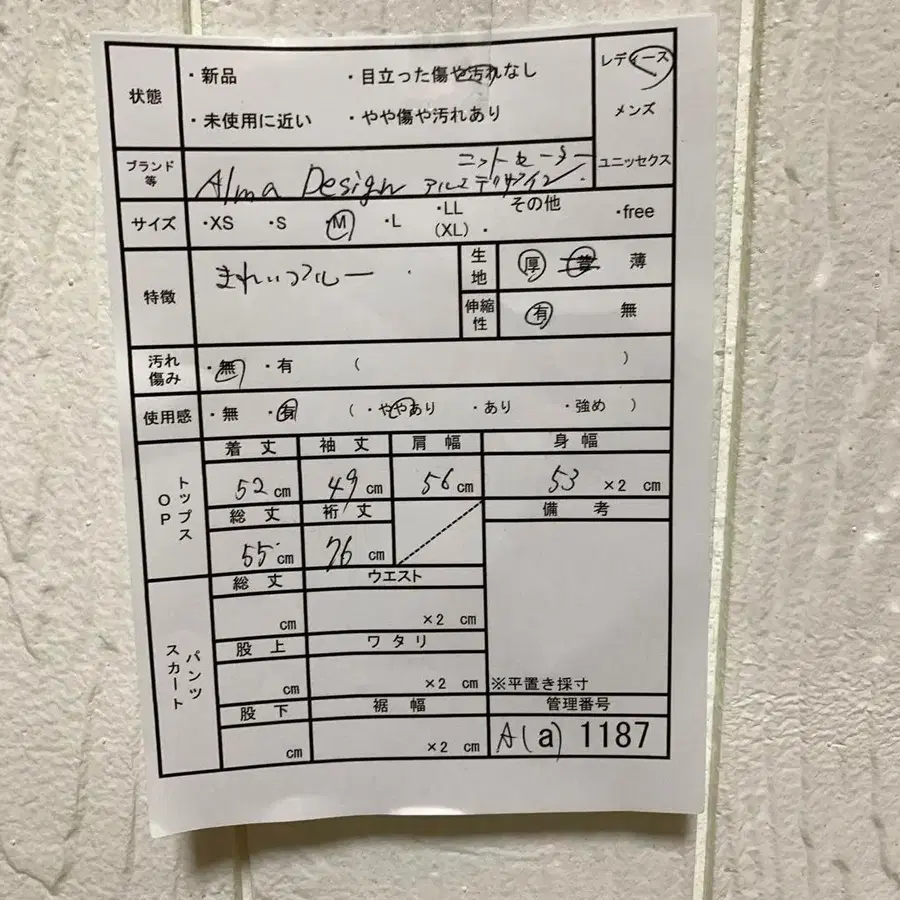 状態 ・新品 ・目立った傷や汚れなし レディース
・未使用に近い ・やや傷や汚れあり メンズ
ユニッセクス
ブランド等 Alma Design ニットセーター
アルマデザイン
サイズ ・XS ・S ・M ・L ・LL (XL) ・その他 ・free
特徴 きれいブルー
生地 厚 普 薄
伸縮性 有 無
汚れ傷み ・無 ・有 ( )
使用感 ・無 ・有 ( ・ややあり ・あり ・強め )
トップス OP 着丈 袖丈 肩幅 身幅
52 cm 49 cm 56 cm 53 ×2 cm
総丈 裄丈 備考
55 cm 76 cm
パンツ スカート 総丈 ウエスト
cm ×2 cm
股上 ワタリ
cm ×2 cm ※平置き採寸
股下 裾幅 管理番号
cm ×2 cm A(a) 1187